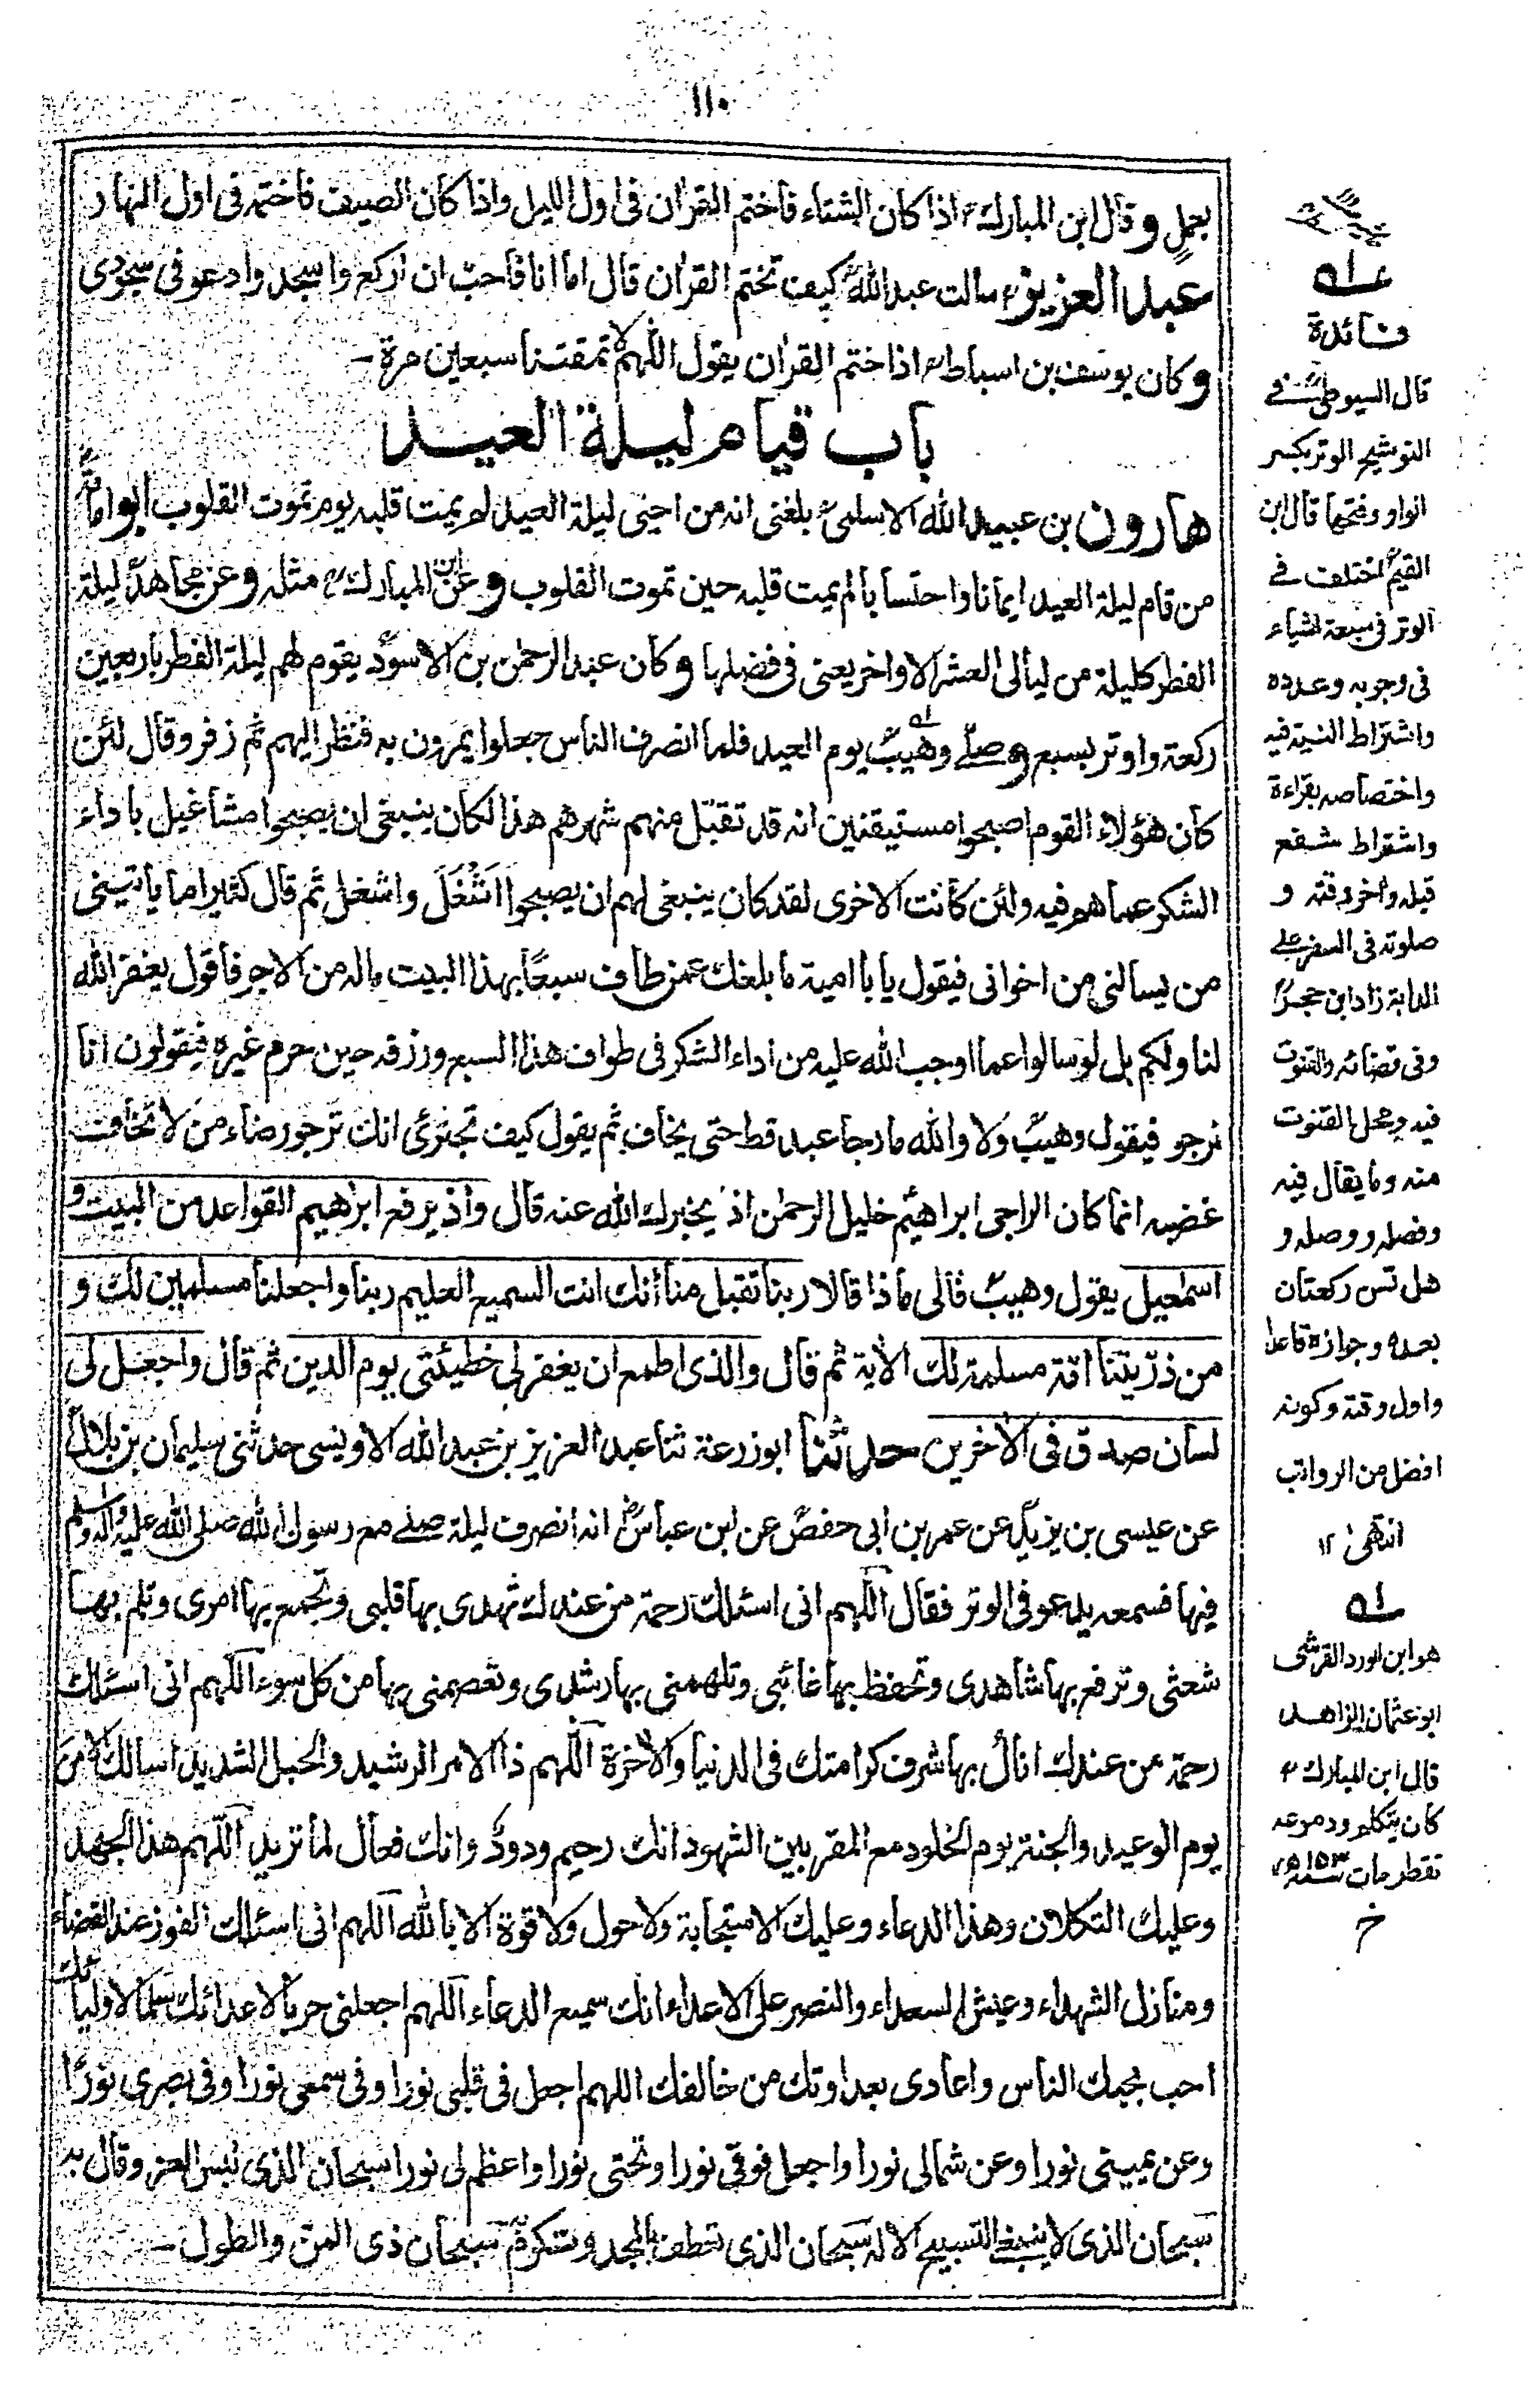 ١١٠
بعملٍ وقال ابن المبارك اذا كان الشتاء فاختم القران فى اول الليل واذا كان الصيف فاختمه فى اول النهار
عبد العزيز سالت عبد الله كيف تختم القران قال اما انا فاحب ان اركع واسجد وادعو فى سجودى
وكان يوسف بن اسباط اذا ختم القران يقول اللهم لا تمقتنا سبعين مرة -
باب قيام ليلة العيد
هارون بن عبيد الله الاسلمى بلغنى انه من احيى ليلة العيد لم يمت قلبه يوم تموت القلوب ابو امامة
من قام ليلة العيد ايمانا واحتسابا لم يمت قلبه حين تموت القلوب وعن ابن المبارك مثله وعن مجاهد ليلة
الفطر كليلة من ليالى العشر الاواخر يعنى فى فضلها وكان عبد الرحمن بن الاسود يقوم لهم ليلة الفطر باربعين
ركعة واوتر بسبع وصلے وهيب يوم العيد فلما انصرف الناس جعلوا يمرون به فنظر اليهم ثم زفر وقال لئن
كان هؤلاء القوم اصبحوا مستيقنين انه قد تقبل منهم شهرهم هذا لكان ينبغى ان يصبحوا مشاغيل باداء
الشكر عما هم فيه ولئن كانت الاخرى لقد كان ينبغى لهم ان يصبحوا اشغل واشغل ثم قال كثيرا ما ياتينى
من يسالنى من اخوانى فيقول يا ابا امية ما بلغك عمن طاف سبعا بهذا البيت ماله من الاجر فاقول يغفر الله
لنا ولكم بل لو سالوا عما اوجب الله عليه من اداء الشكر فى طواف هذا السبع ورزقه حين حرم غيره فيقولون انا
نرجو فيقول وهيب ولا والله ما رجا عبد قط حتى يخاف ثم يقول كيف تجترئ انك ترجو رضاء من لا تخاف
غضبه انما كان الراجى ابراهيم خليل الرحمن اذ يخبرك الله عنه قال واذ يرفع ابراهيم القواعد من البيت و
اسمعيل يقول وهيب فالى ماذا قالا ربنا تقبل منا انك انت السميع العليم ربنا واجعلنا مسلمين لك و
من ذريتنا امة مسلمة لك الاية ثم قال والذى اطمع ان يغفر لى خطيئتى يوم الدين ثم قال واجعل لى
لسان صدق فى الاخرين حدثنا ابو زرعة ثنا عبد العزيز بن عبد الله الاويسى حدثنى سليمان بن بلال
عن عيسى بن يزيد عن عمر بن ابى حفص عن ابن عباس انه انصرف ليلة صلے مع رسول الله صلى الله عليه واله وسلم
فيها فسمعه يدعو فى الوتر فقال اللهم انى اسئلك رحمة من عندك تهدى بها قلبى وتجمع بها امرى وتلم بها
شعثى وترفع بها شاهدى وتحفظ بها غائبى وتلهمنى بها رشدى وتعصمنى بها من كل سوء اللهم انى اسئلك
رحمة من عندك انال بها شرف كرامتك فى الدنيا والاخرة اللهم ذا الامر الرشيد والحبل الشديد اسالك الامن
يوم الوعيد والجنة يوم الخلود مع المقربين الشهود انك رحيم ودود وانك فعال لما تريد اللهم هذا الجهد
وعليك التكلان وهذا الدعاء وعليك الاستجابة ولا حول ولا قوة الا بالله اللهم انى اسئلك الفوز عند القضاء
ومنازل الشهداء وعيش السعداء والنصر على الاعداء انك سميع الدعاء اللهم اجعلنى حربا لاعدائك سلما لاوليائك
احب بحبك الناس واعادى بعداوتك من خالفك اللهم اجعل فى قلبى نورا وفى سمعى نورا وفى بصرى نورا
وعن يمينى نورا وعن شمالى نورا واجعل فوقى نورا وتحتى نورا واعظم لى نورا سبحان الذى لبس العز وقال به
سبحان الذى لا ينبغى التسبيح الا له سبحان الذى تعطف بالمجد وتكرم سبحان ذى المن والطول -
فائدة
قال السيوطى فے
التوشيح الوتر بكسر
الواو وفتحها قال ابن
القيم اختلف فے
الوتر فى سبعة اشياء
فى وجوبه وعدده
واشتراط النية فيه
واختصاصه بقراءة
واشتراط شفع
قبله واخر وقته و
صلوته فى السفر على
الدابة زاد ابن حجر
وفى قضائه والقنوت
فيه ومحل القنوت
منه وما يقال فيه
وفصله ووصله و
هل تسن ركعتان
بعده وجوازه قاعدا
واول وقته وكونه
افضل من الرواتب
انتهى ١٢
هو ابن الورد القرشى
ابو عثمان الزاهد
قال ابن المبارك
كان يتكلم ودموعه
تقطر مات سنة ١٥٣ھ